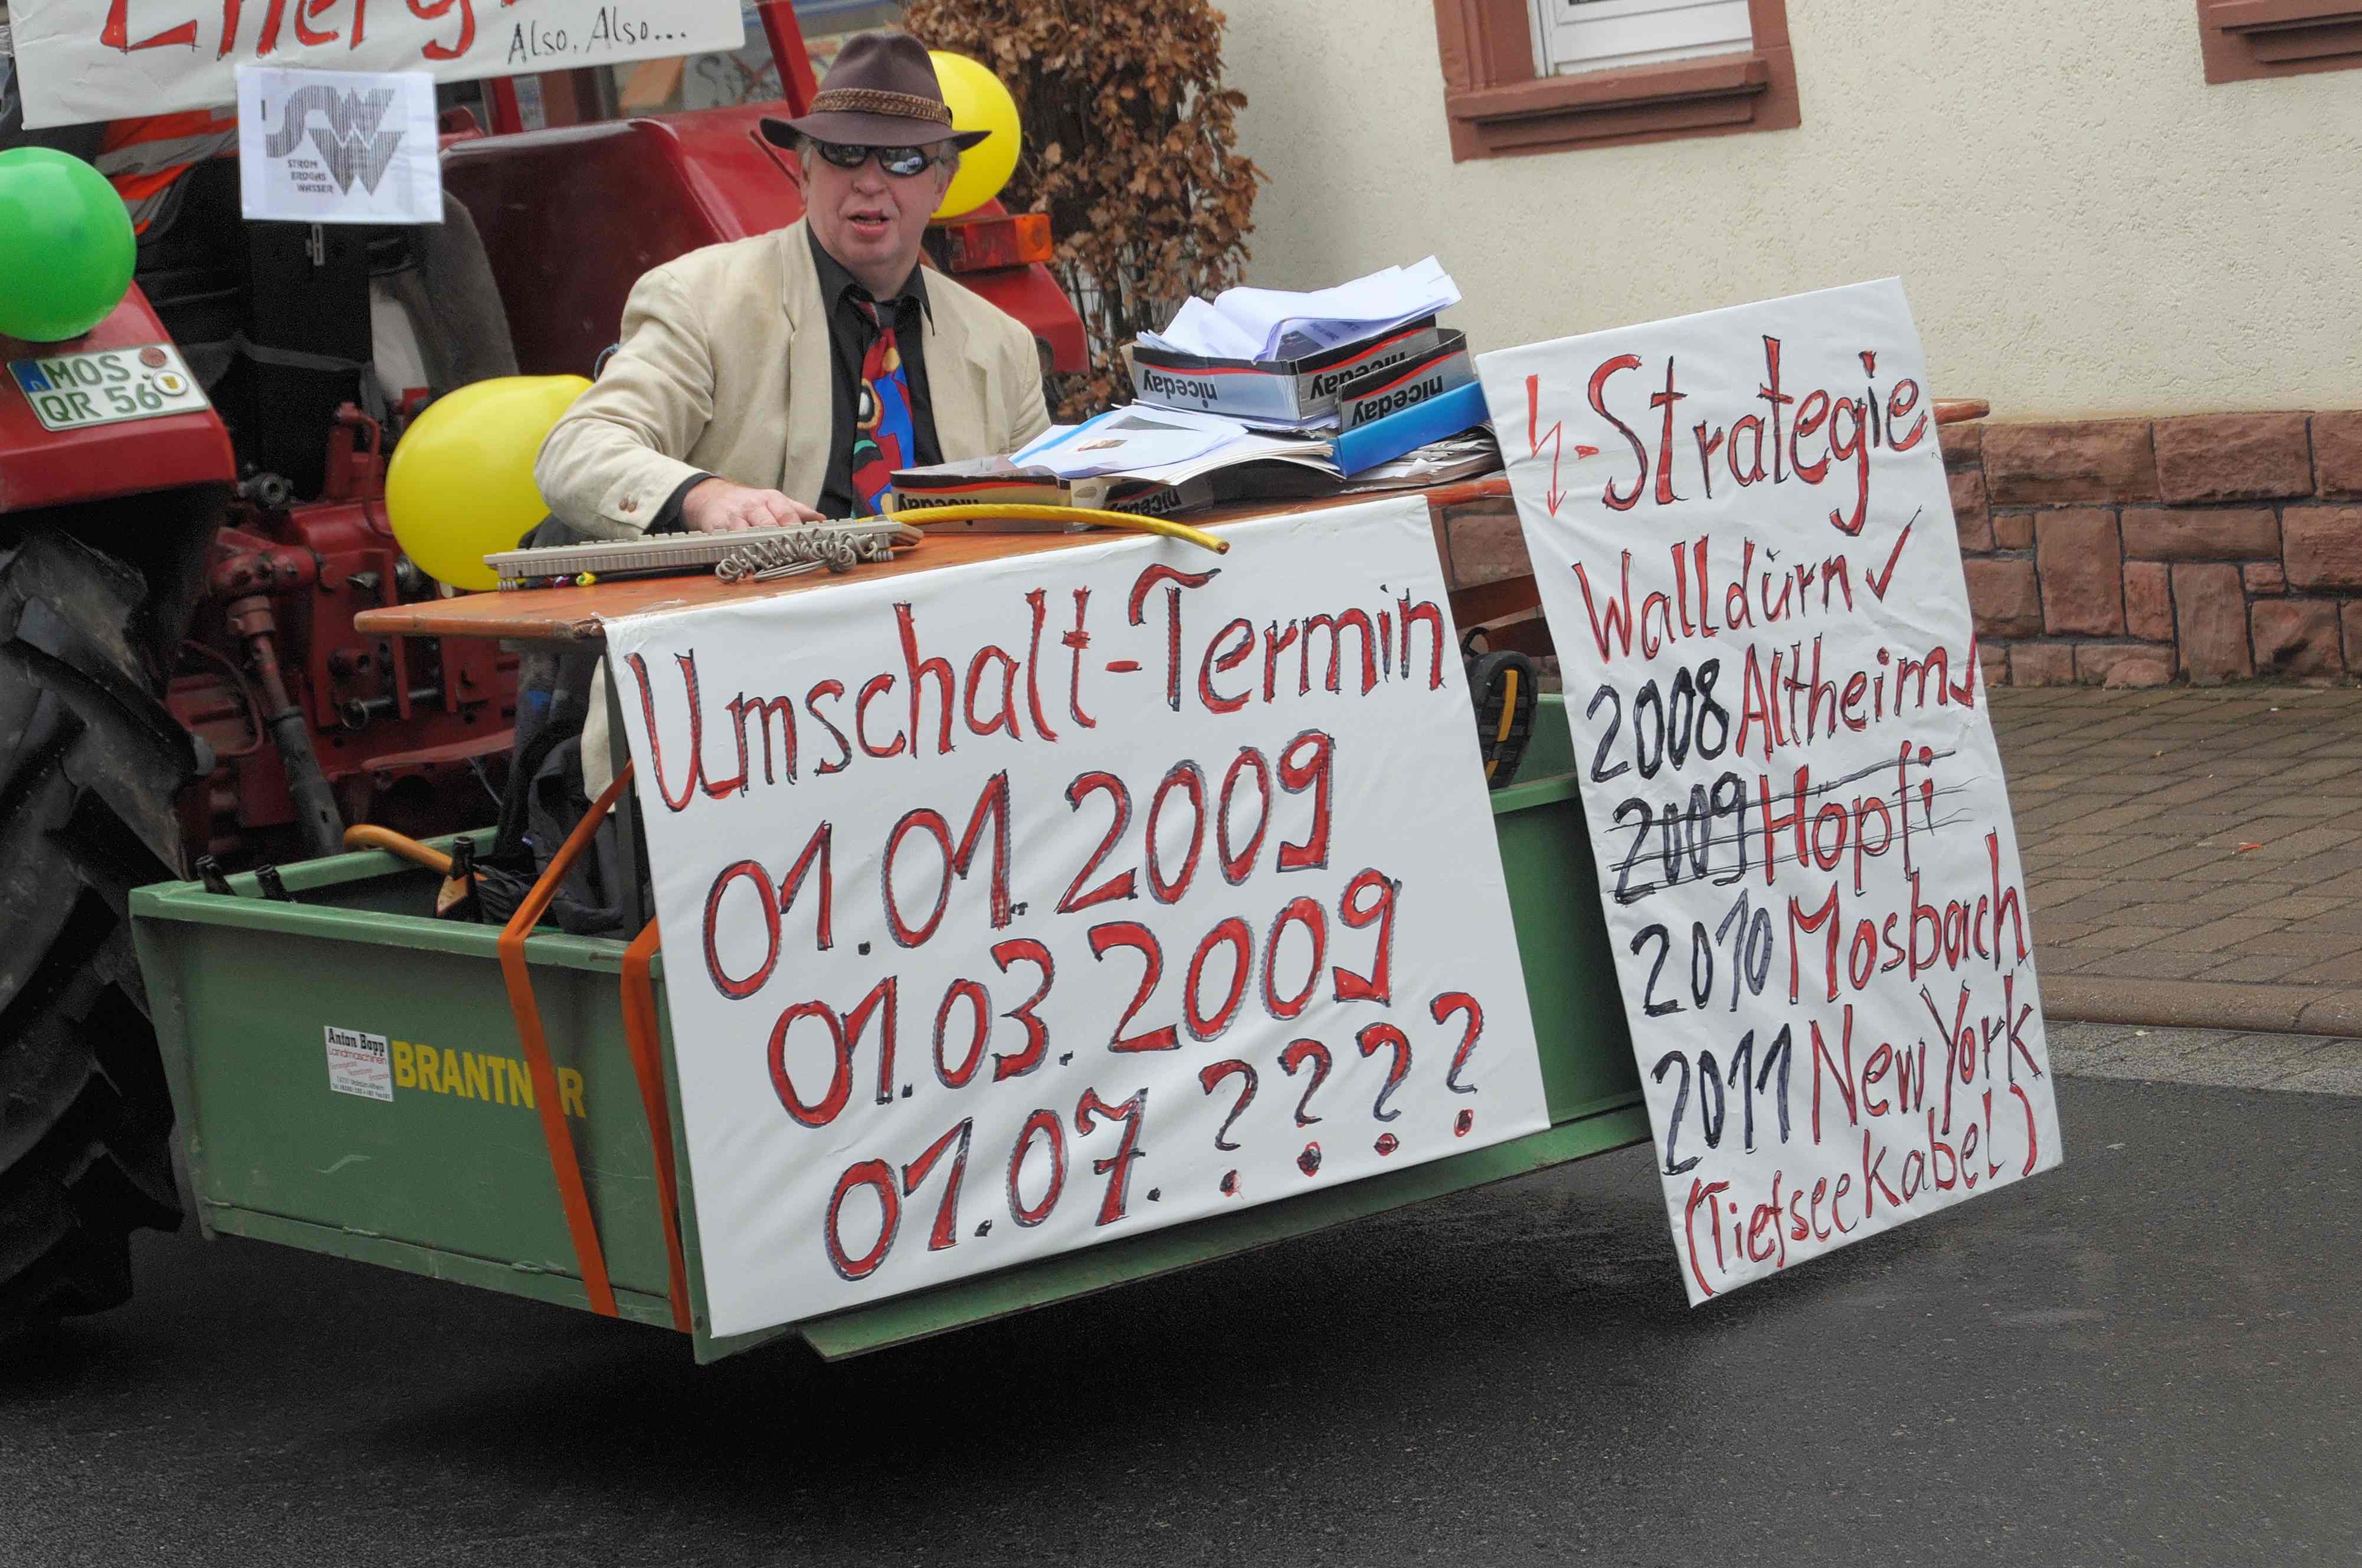 Energ
Also, Also...
SWW
STROM
ERDGAS
WASSER
MOS
QR 56
niceday
niceday
niceday
niceday
niceday
Umschalt-Termin
01.01.2009
01.03.2009
01.07.????
-Strategie
Walldürn ✓
2008 Altheim ✓
2009 Höpfi
2010 Mosbach
2011 New York
(Tiefseekabel)
Anton Bopp
Landmaschinen
BRANTNER